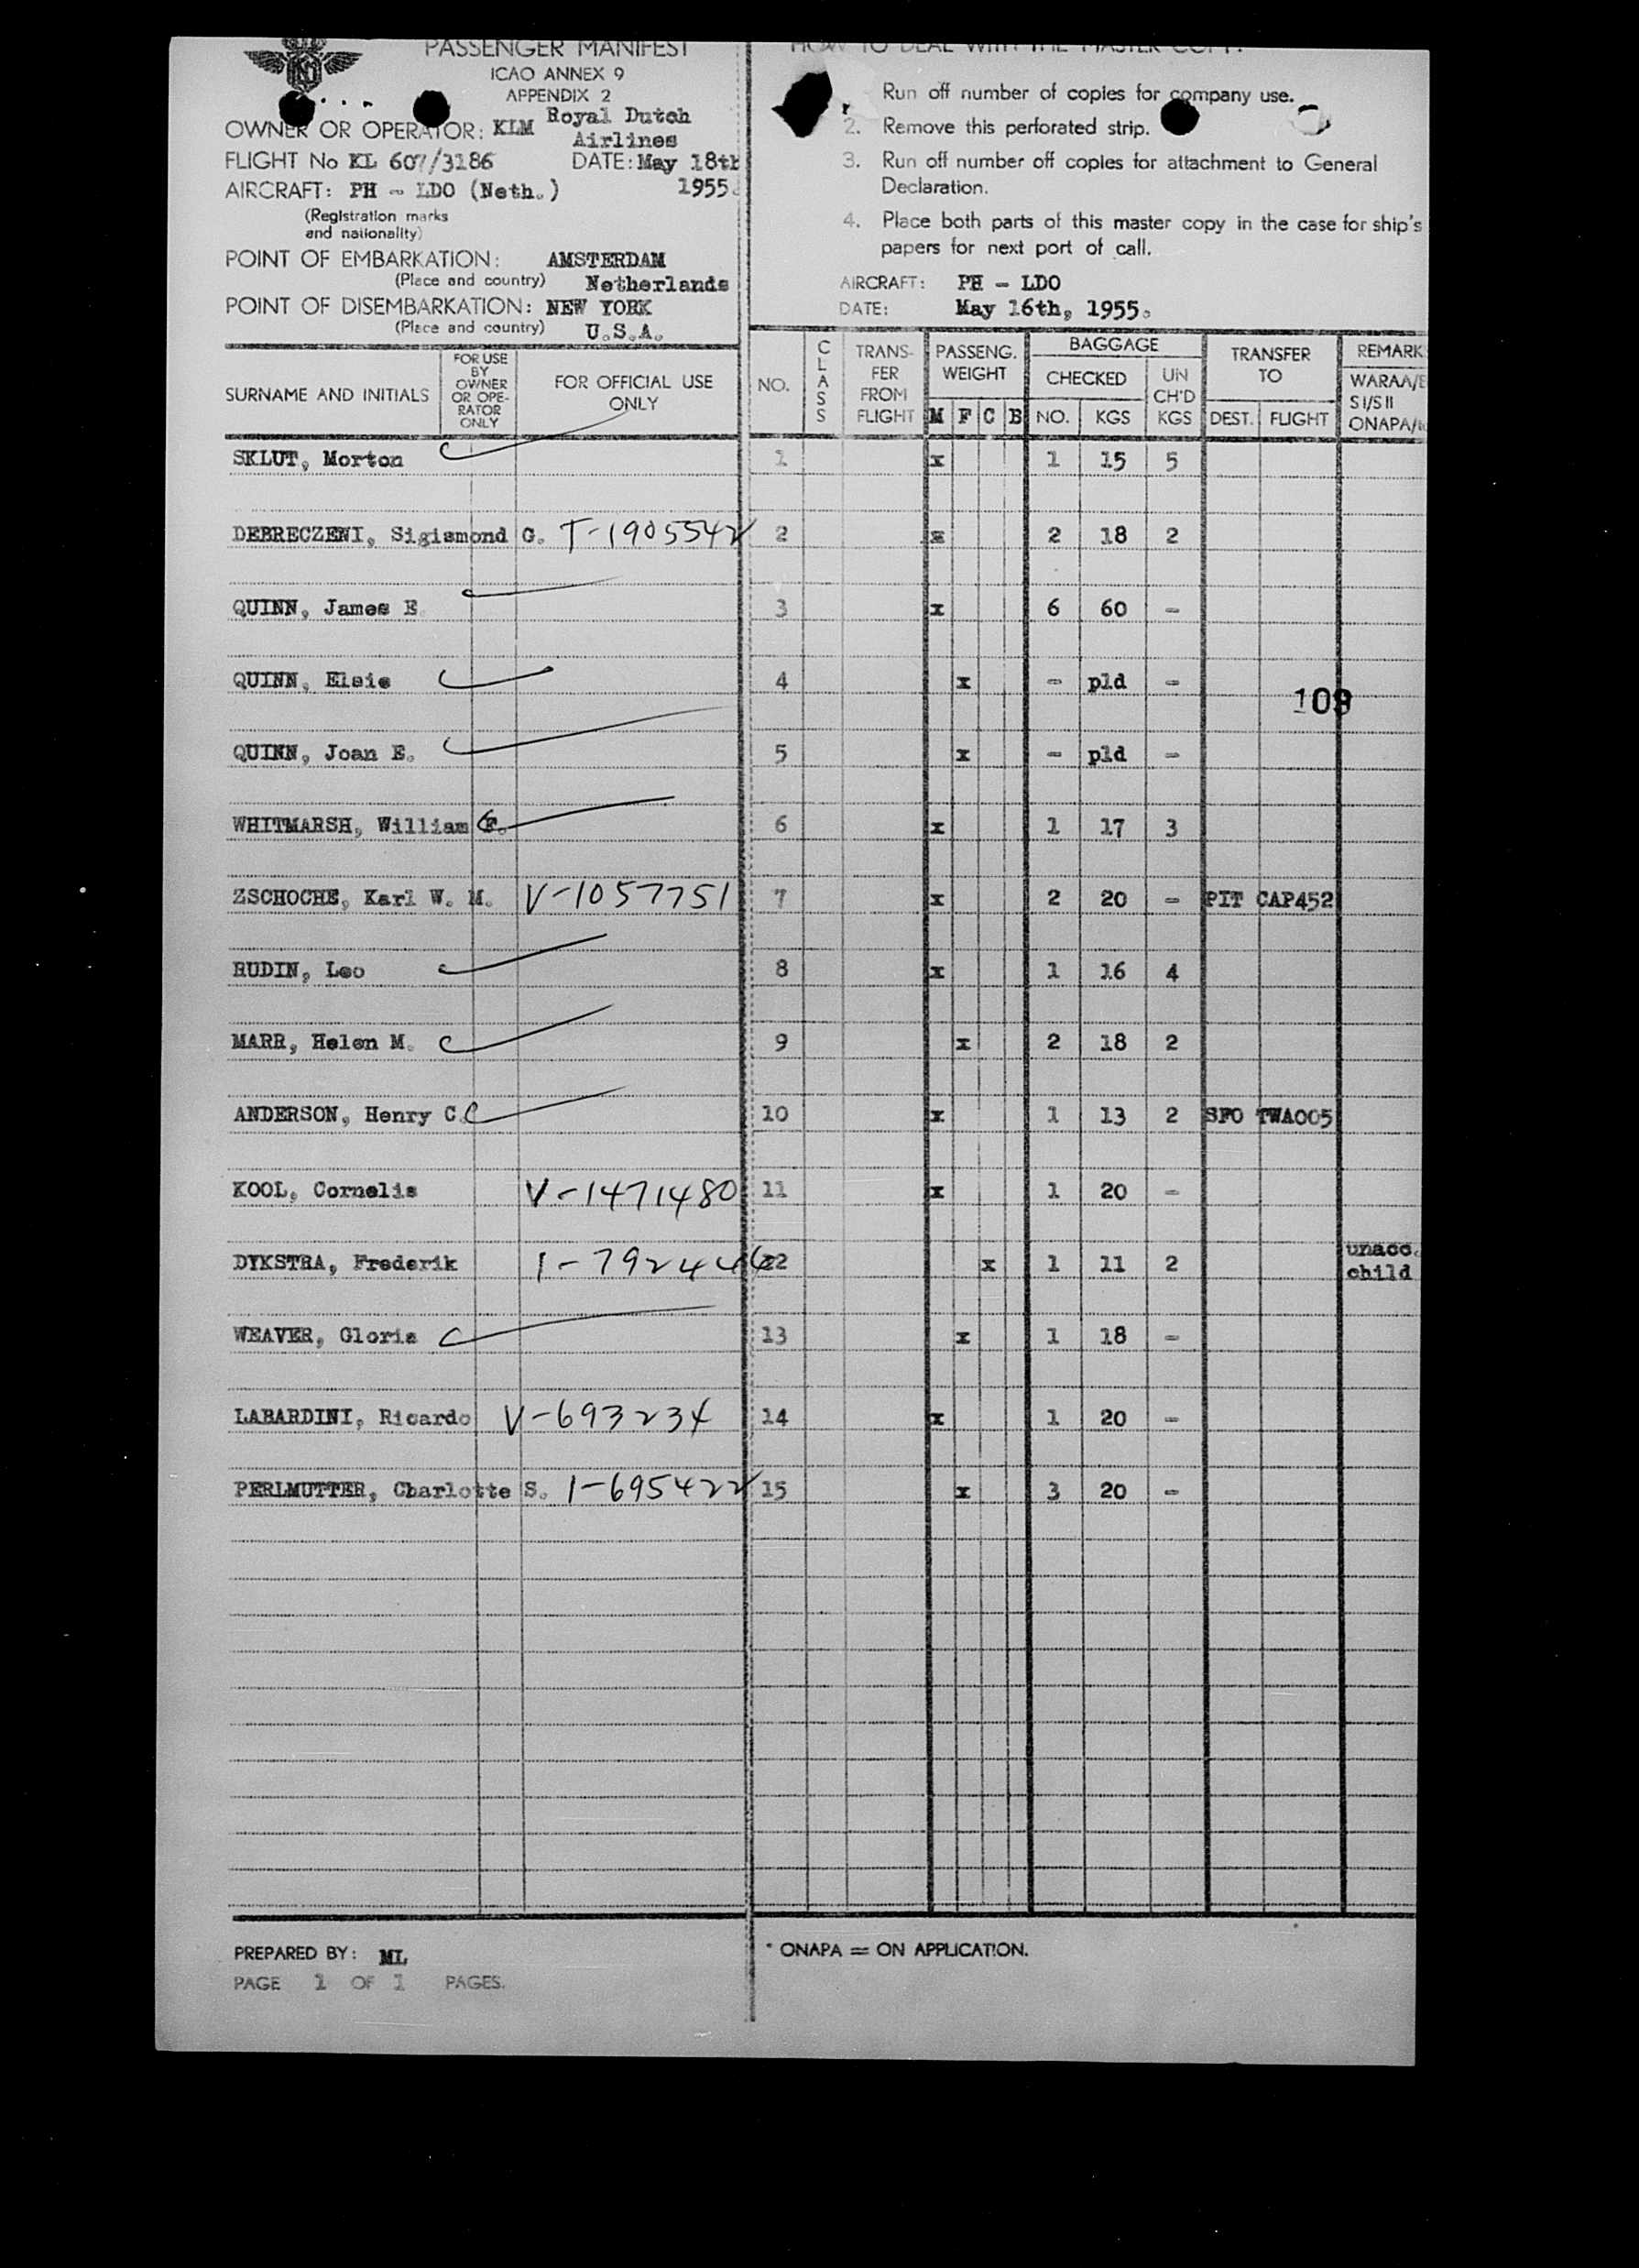 PASSENGER MANIFEST
ICAO ANNEX 9
APPENDIX 2
OWNER OR OPERATOR: KLM Royal Dutch
Airlines
FLIGHT No KL 607/3186 DATE: May 18th
AIRCRAFT: PH - LDO (Neth.) 1955.
(Registration marks
and nationality)
POINT OF EMBARKATION: AMSTERDAM
(Place and country) Netherlands
POINT OF DISEMBARKATION: NEW YORK
(Place and country) U.S.A.
HOW TO DEAL WITH THE MASTER COPY.
Run off number of copies for company use.
2. Remove this perforated strip.
3. Run off number off copies for attachment to General
Declaration.
4. Place both parts of this master copy in the case for ship's
papers for next port of call.
AIRCRAFT: PH - LDO
DATE: May 16th, 1955.
SURNAME AND INITIALS
FOR USE
BY
OWNER
OR OPE-
RATOR
ONLY
FOR OFFICIAL USE
ONLY
NO.
CLASS
TRANS-
FER
FROM
FLIGHT
PASSENG.
WEIGHT
M F C B
BAGGAGE
CHECKED
NO. KGS
UN
CH'D
KGS
TRANSFER
TO
DEST. FLIGHT
REMARK
WARAA/
SI/SII
ONAPA/
SKLUT, Morton 1 x 1 15 5
DEBRECZENI, Sigismond G. T-1905542 2 x 2 18 2
QUINN, James E. 3 x 6 60 -
QUINN, Elsie 4 x - pld -
109
QUINN, Joan E. 5 x - pld -
WHITMARSH, William F. 6 x 1 17 3
ZSCHOCHE, Karl W. M. V-1057751 7 x 2 20 - PIT CAP452
RUDIN, Leo 8 x 1 16 4
MARR, Helen M. 9 x 2 18 2
ANDERSON, Henry C. 10 x 1 13 2 SFO TWA005
KOOL, Cornelis V-1471480 11 x 1 20 -
DYKSTRA, Frederik 12 x 1 11 2 unacc.
child
WEAVER, Gloria 13 x 1 18 -
LABARDINI, Ricardo V-693234 14 x 1 20 -
PERLMUTTER, Charlotte S. 1-695422 15 x 3 20 -
PREPARED BY: ML
PAGE 1 OF 1 PAGES.
* ONAPA = ON APPLICATION.